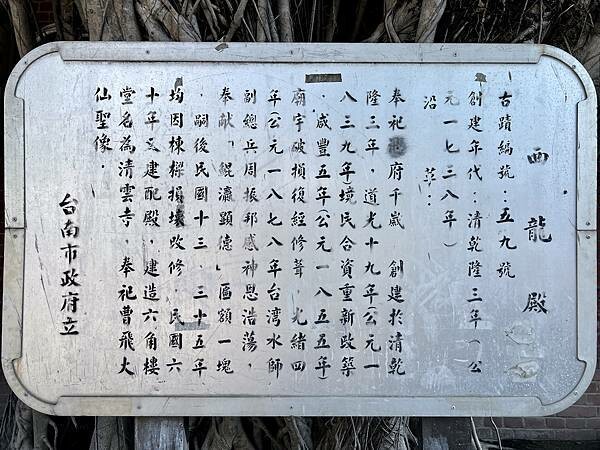 西龍殿
古蹟編號：五九號
創建年代：清乾隆三年（公
元一七三八年）
沿革：
奉祀 府千歲　創建於清乾
隆三年，道光十九年（公元一
八三九年境民合資重新改築
，咸豐五年（公元一八五五年）
廟宇破損後經修葺，光緒四
年（公元一八七八年台湾水師
副總兵周振邦感神恩浩蕩，
奉献「鯤瀛顕德」匾額一塊
．嗣後民國十三．三十五年
均因棟樑損壞改修．民國六
十年又建配殿，建造六角樓
堂名為清雲寺，奉祀曹飛大
仙聖像．
台南市政府立